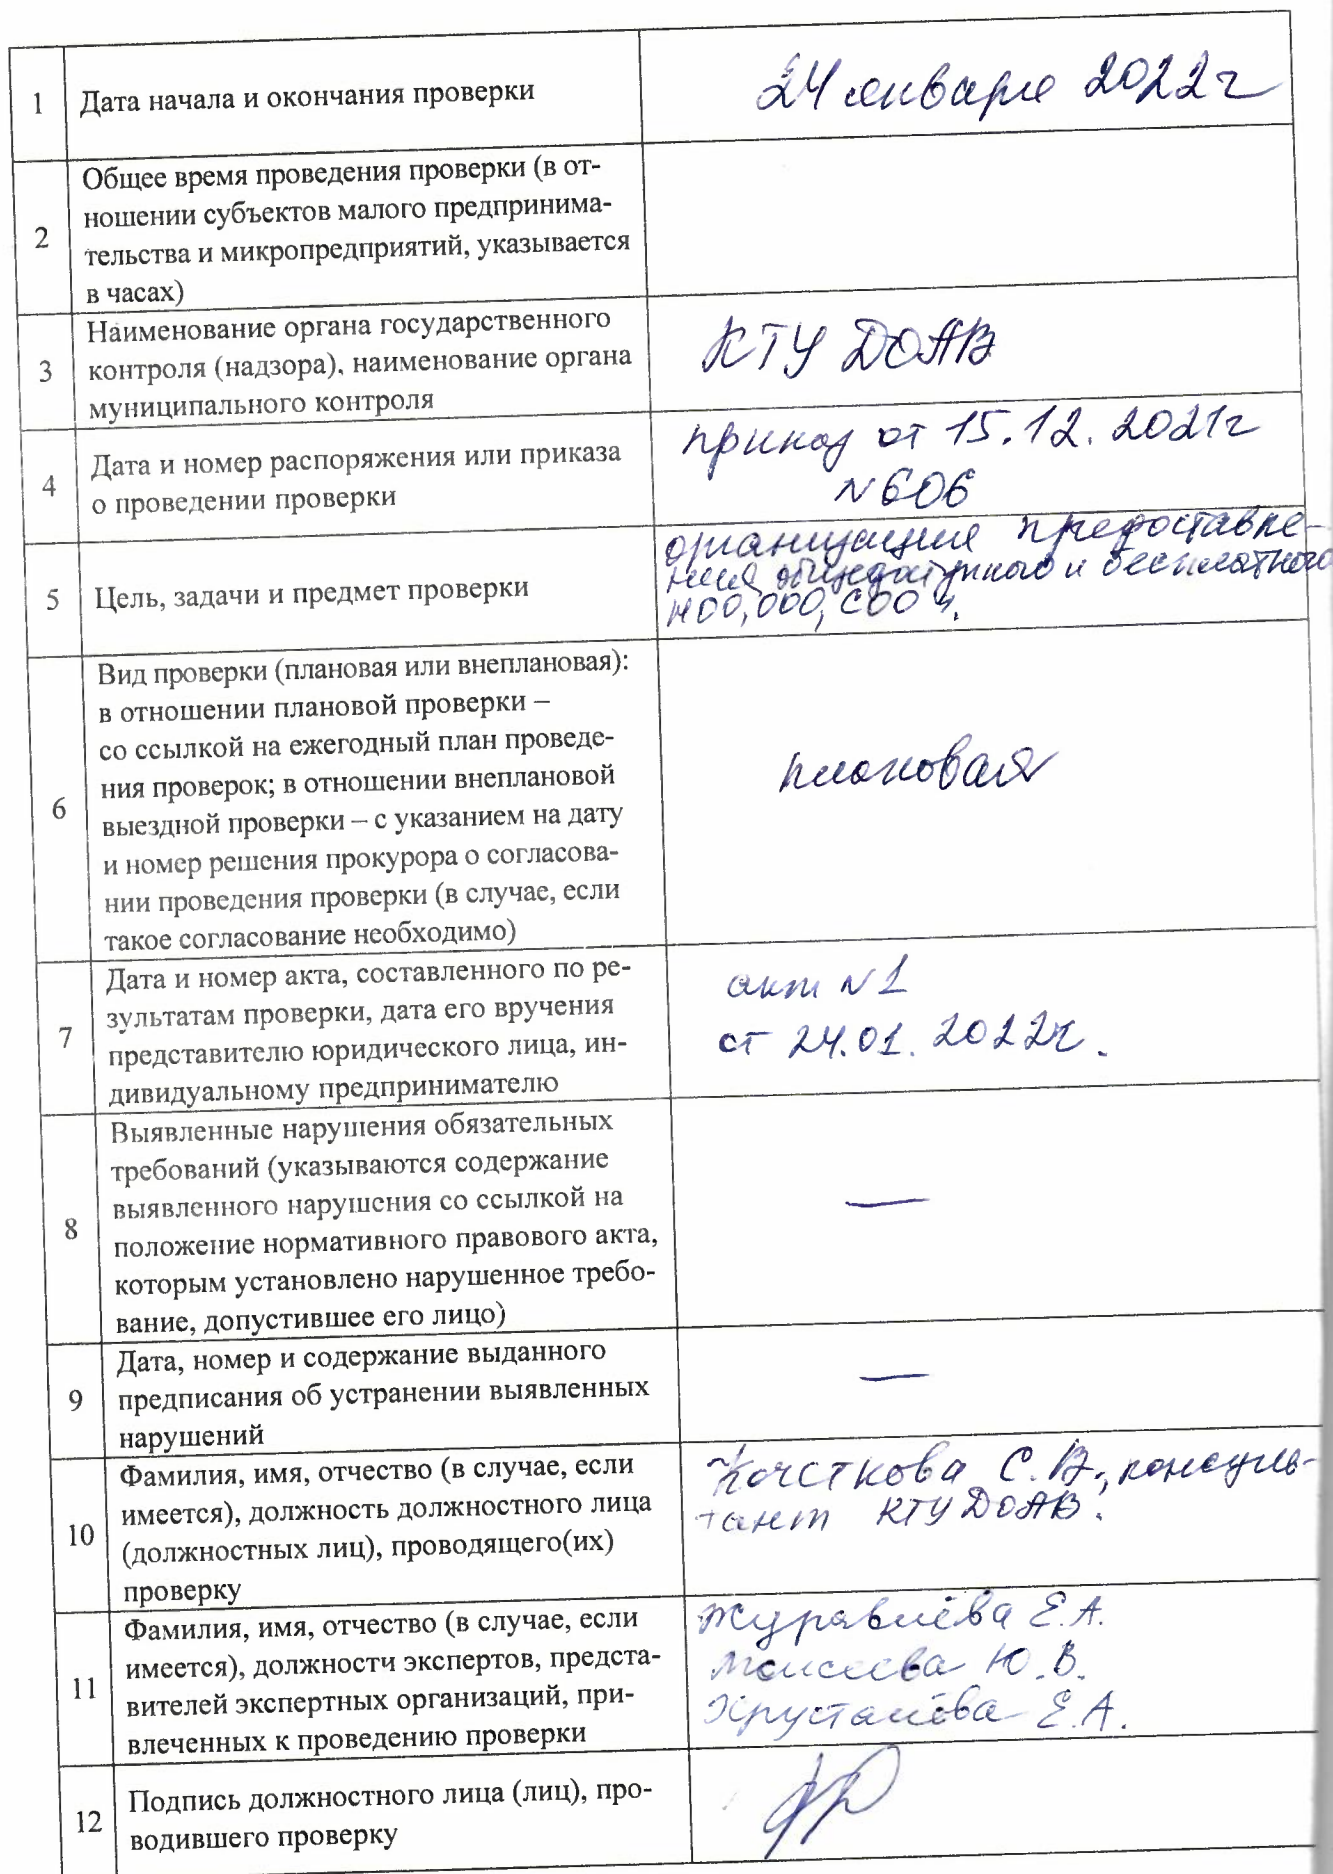 1 Дата начала и окончания проверки
24 января 2022г
2 Общее время проведения проверки (в от-
ношении субъектов малого предпринима-
тельства и микропредприятий, указывается
в часах)
3 Наименование органа государственного
контроля (надзора), наименование органа
муниципального контроля
КТУ ДОАВ
4 Дата и номер распоряжения или приказа
о проведении проверки
приказ от 15.12.2021г
N 606
5 Цель, задачи и предмет проверки
организация предоставле-
ния общедоступного и бесплатного
НОО, ООО, СОО
6 Вид проверки (плановая или внеплановая):
в отношении плановой проверки –
со ссылкой на ежегодный план проведе-
ния проверок; в отношении внеплановой
выездной проверки – с указанием на дату
и номер решения прокурора о согласова-
нии проведения проверки (в случае, если
такое согласование необходимо)
плановая
7 Дата и номер акта, составленного по ре-
зультатам проверки, дата его вручения
представителю юридического лица, ин-
дивидуальному предпринимателю
акт N 1
от 24.01.2022г.
8 Выявленные нарушения обязательных
требований (указываются содержание
выявленного нарушения со ссылкой на
положение нормативного правового акта,
которым установлено нарушенное требо-
вание, допустившее его лицо)
—
9 Дата, номер и содержание выданного
предписания об устранении выявленных
нарушений
—
10 Фамилия, имя, отчество (в случае, если
имеется), должность должностного лица
(должностных лиц), проводящего(их)
проверку
С.В., консуль-
тант КТУ ДОАВ.
11 Фамилия, имя, отчество (в случае, если
имеется), должности экспертов, предста-
вителей экспертных организаций, при-
влеченных к проведению проверки
Журавлёва Е.А.
Моисеева Ю.В.
Хрусталёва Е.А.
12 Подпись должностного лица (лиц), про-
водившего проверку